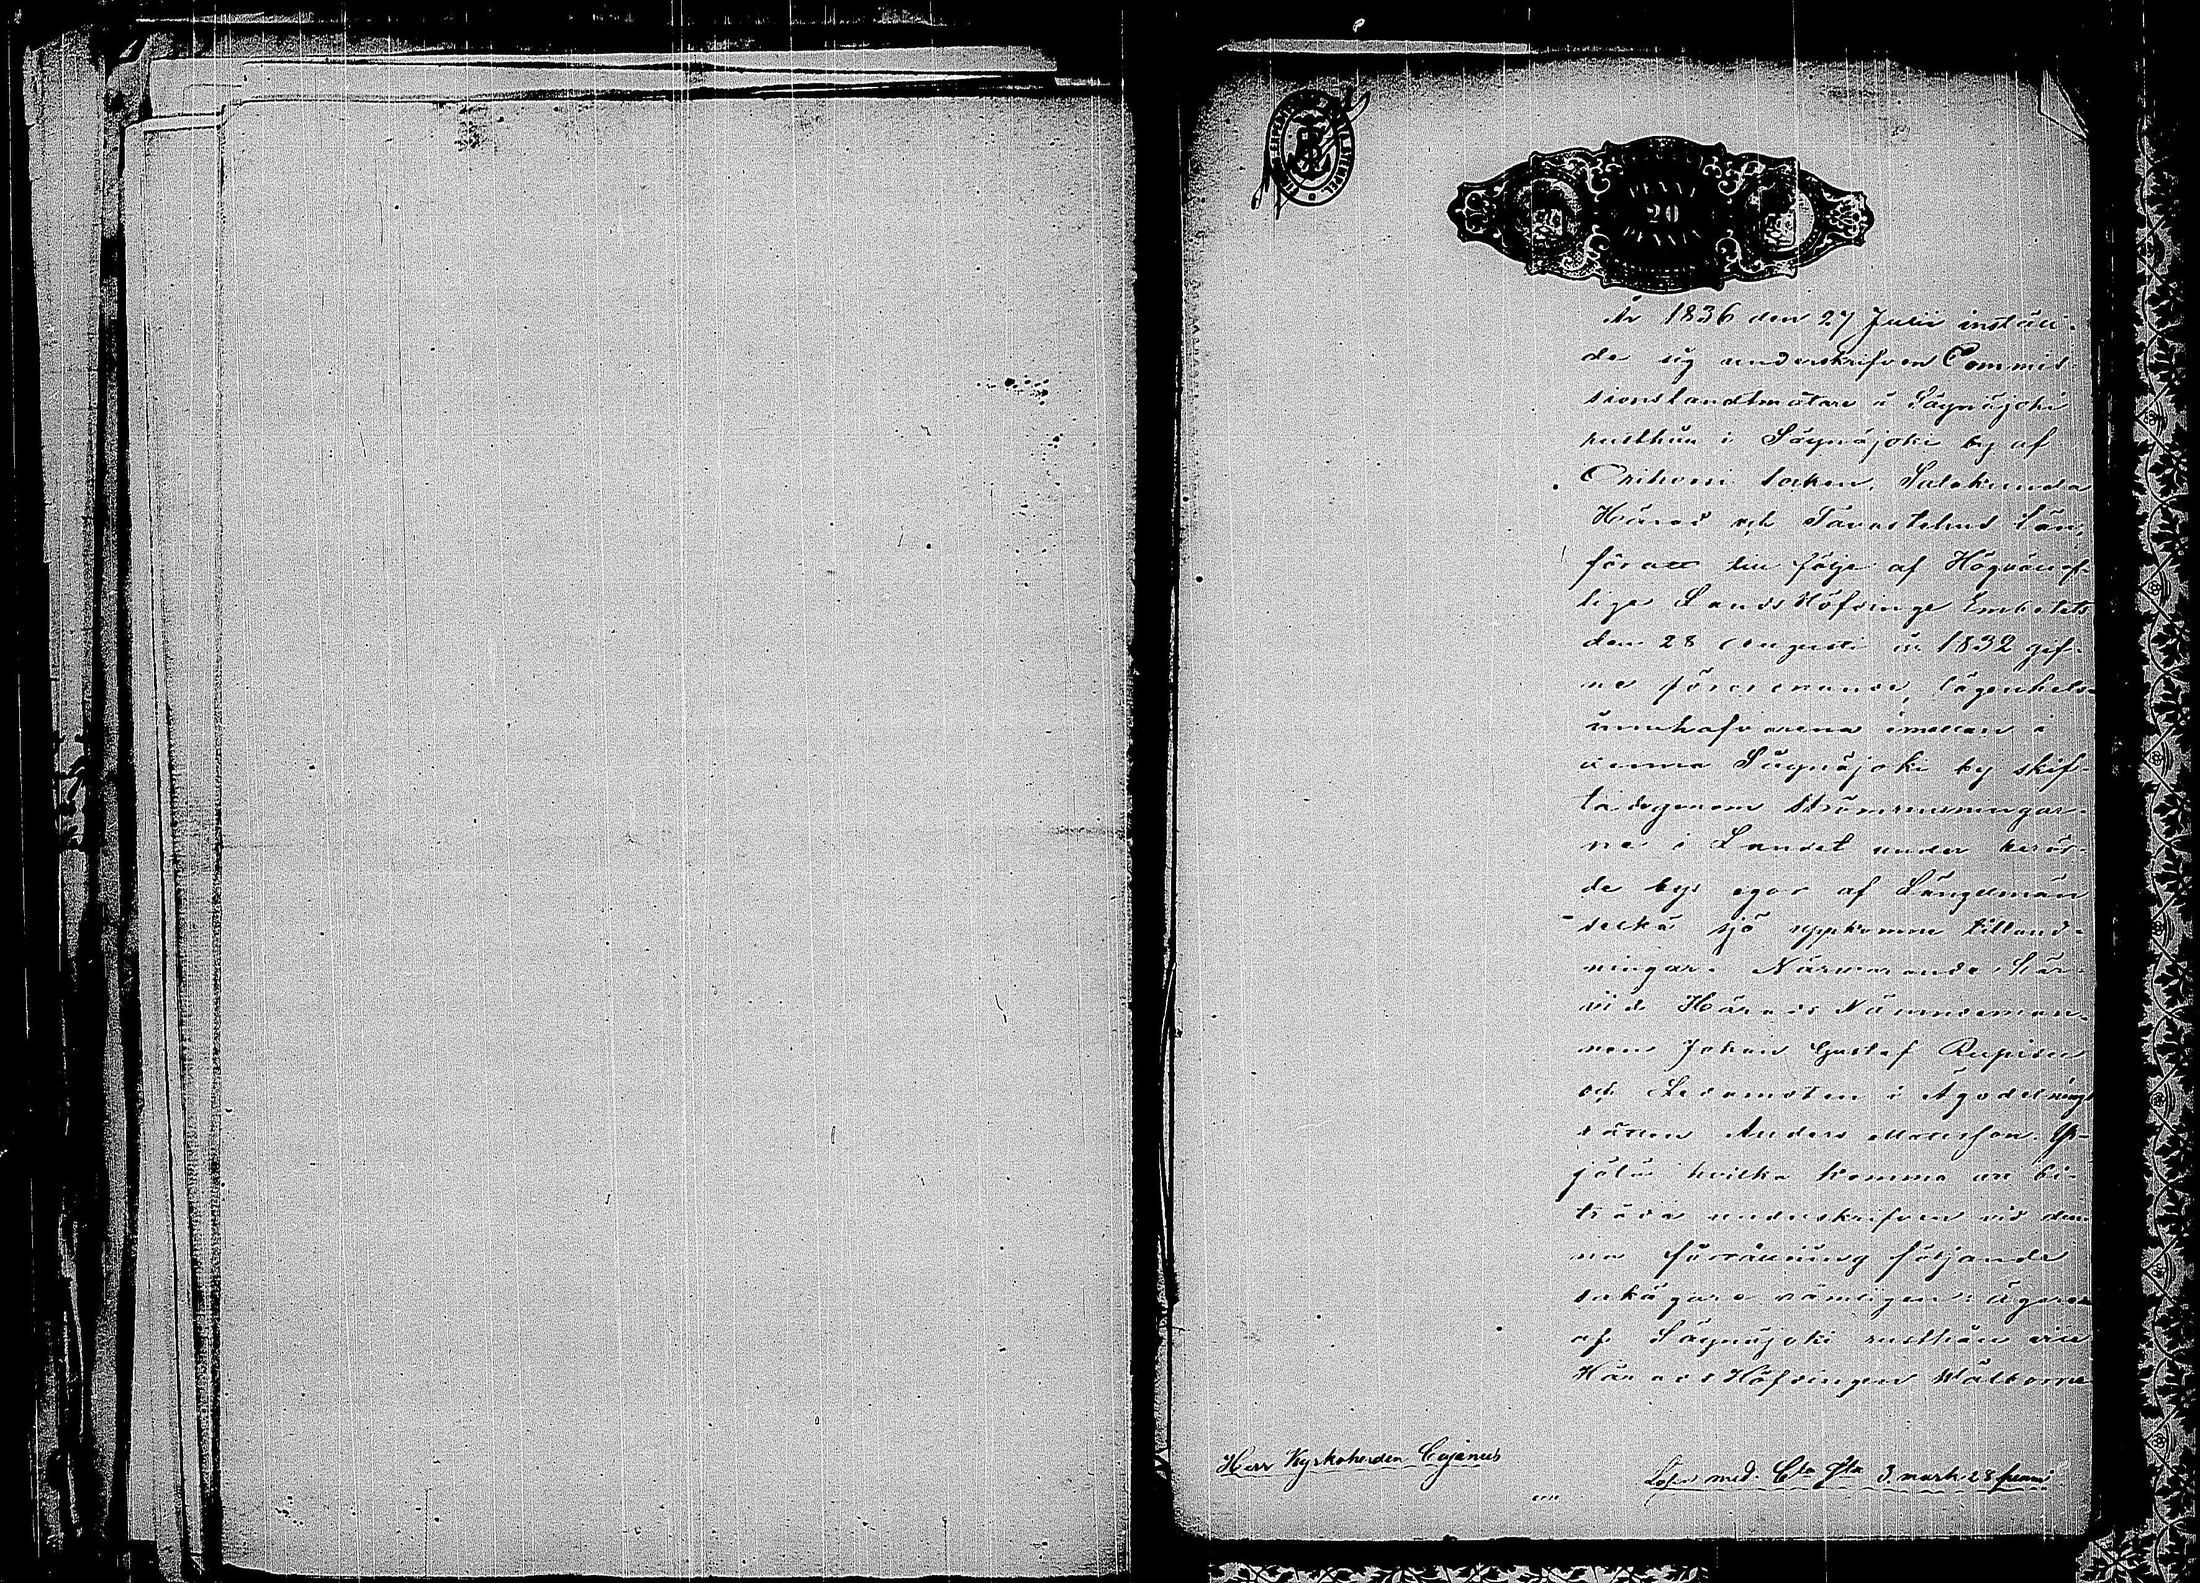 PENNI
20
PENNIÄ
År 1836 den 27 Julii instäl-
de sig underskrifven Commis-
sionslandtmätare å Sägnäjoki
rusthåll i Sägnäjoki by af
Orihvesi socken, Satakunda
Härad och Tavastehus län,
för att till följe af Högvälof-
lige Lands Höfdinge Embetets
den 28 Augusti år 1832 gif-
ne förordnande, lägenhets-
innehafvarena imellan i
denna Sägnäjoki by skif-
ta de genom strömrensningar-
ne i Landet under berör-
de bys egor af Längelmän
vesi sjö uppkomne tilland-
ningar. Närvarande här-
vid Härads Nämndeman-
nen Johan Gustaf
och Ledamoten i Ägodelnings
rätten Anders Mattsson
jälä hvilka komma att bi-
träda underskrifven vid den-
na förrättning följande
sakägare nämligen: ägaren
af Sägnäjoki rusthåll
Härads Höfdingen Välborne
Herr Kyrkoherden Cajanus
Lösen med Cta Sta 3 mark 28 penni